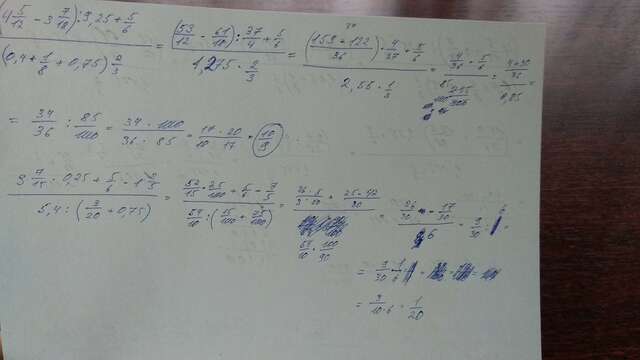 (4 5/12 − 3 7/18) : 9,25 + 5/6 / (0,4 + 1/8 + 0,75) 2/3 = (53/12 − 61/18) : 37/4 + 5/6 / 1,275 · 2/3 = (159 + 122 / 36) · 4/37 + 5/6 / 2,55 · 1/3 = 4/36 + 5/6 / = 4+30/36 / 0,85 =
= 34/36 : 85/100 = 34 · 100 / 36 · 85 = 17 · 20 / 18 · 17 = 10/9
3 7/15 · 0,25 + 5/6 − 1 2/5 / 5,4 : (3/20 + 0,75) = 52/15 · 25/100 + 5/6 − 7/5 / 54/10 : (15/100 + 75/100) = 26 · / + 25 − 42 / 30 / 54/10 · 100/90 = 26/30 − 17/30 / 6 = 9/30 : 6 =
= 9/30 · 1/6
= 3/10·6 = 1/20